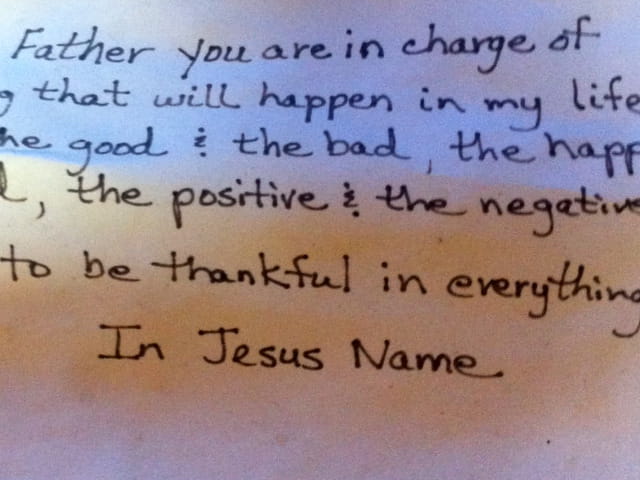 Father you are in charge of
that will happen in my life
good & the bad, the
, the positive & the
to be thankful in everything
In Jesus Name